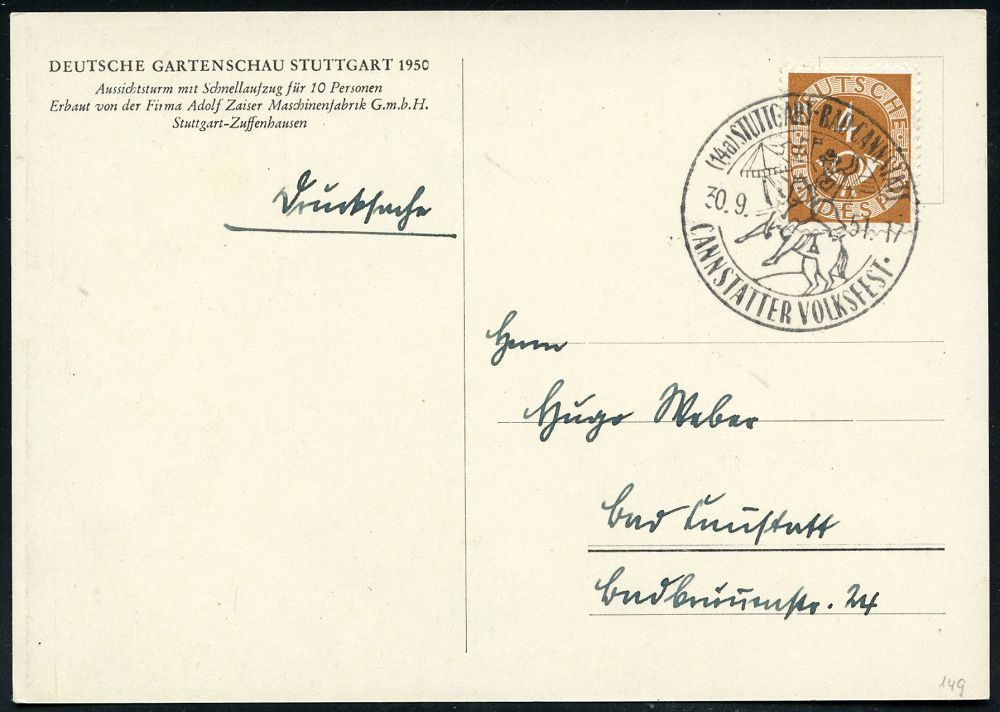 DEUTSCHE GARTENSCHAU STUTTGART 1950
Aussichtsturm mit Schnellaufzug für 10 Personen
Erbaut von der Firma Adolf Zaiser Maschinenfabrik G.m.b.H.
Stuttgart-Zuffenhausen
Drucksache
(14a) STUTTGART-BAD CANNSTATT
30.9. 51.-17
CANNSTATTER VOLKSFEST.
DEUTSCHE
BUNDESPOST
4
Herrn
Hugo Weber
Bad Cannstatt
Badbrunnenstr. 24
149